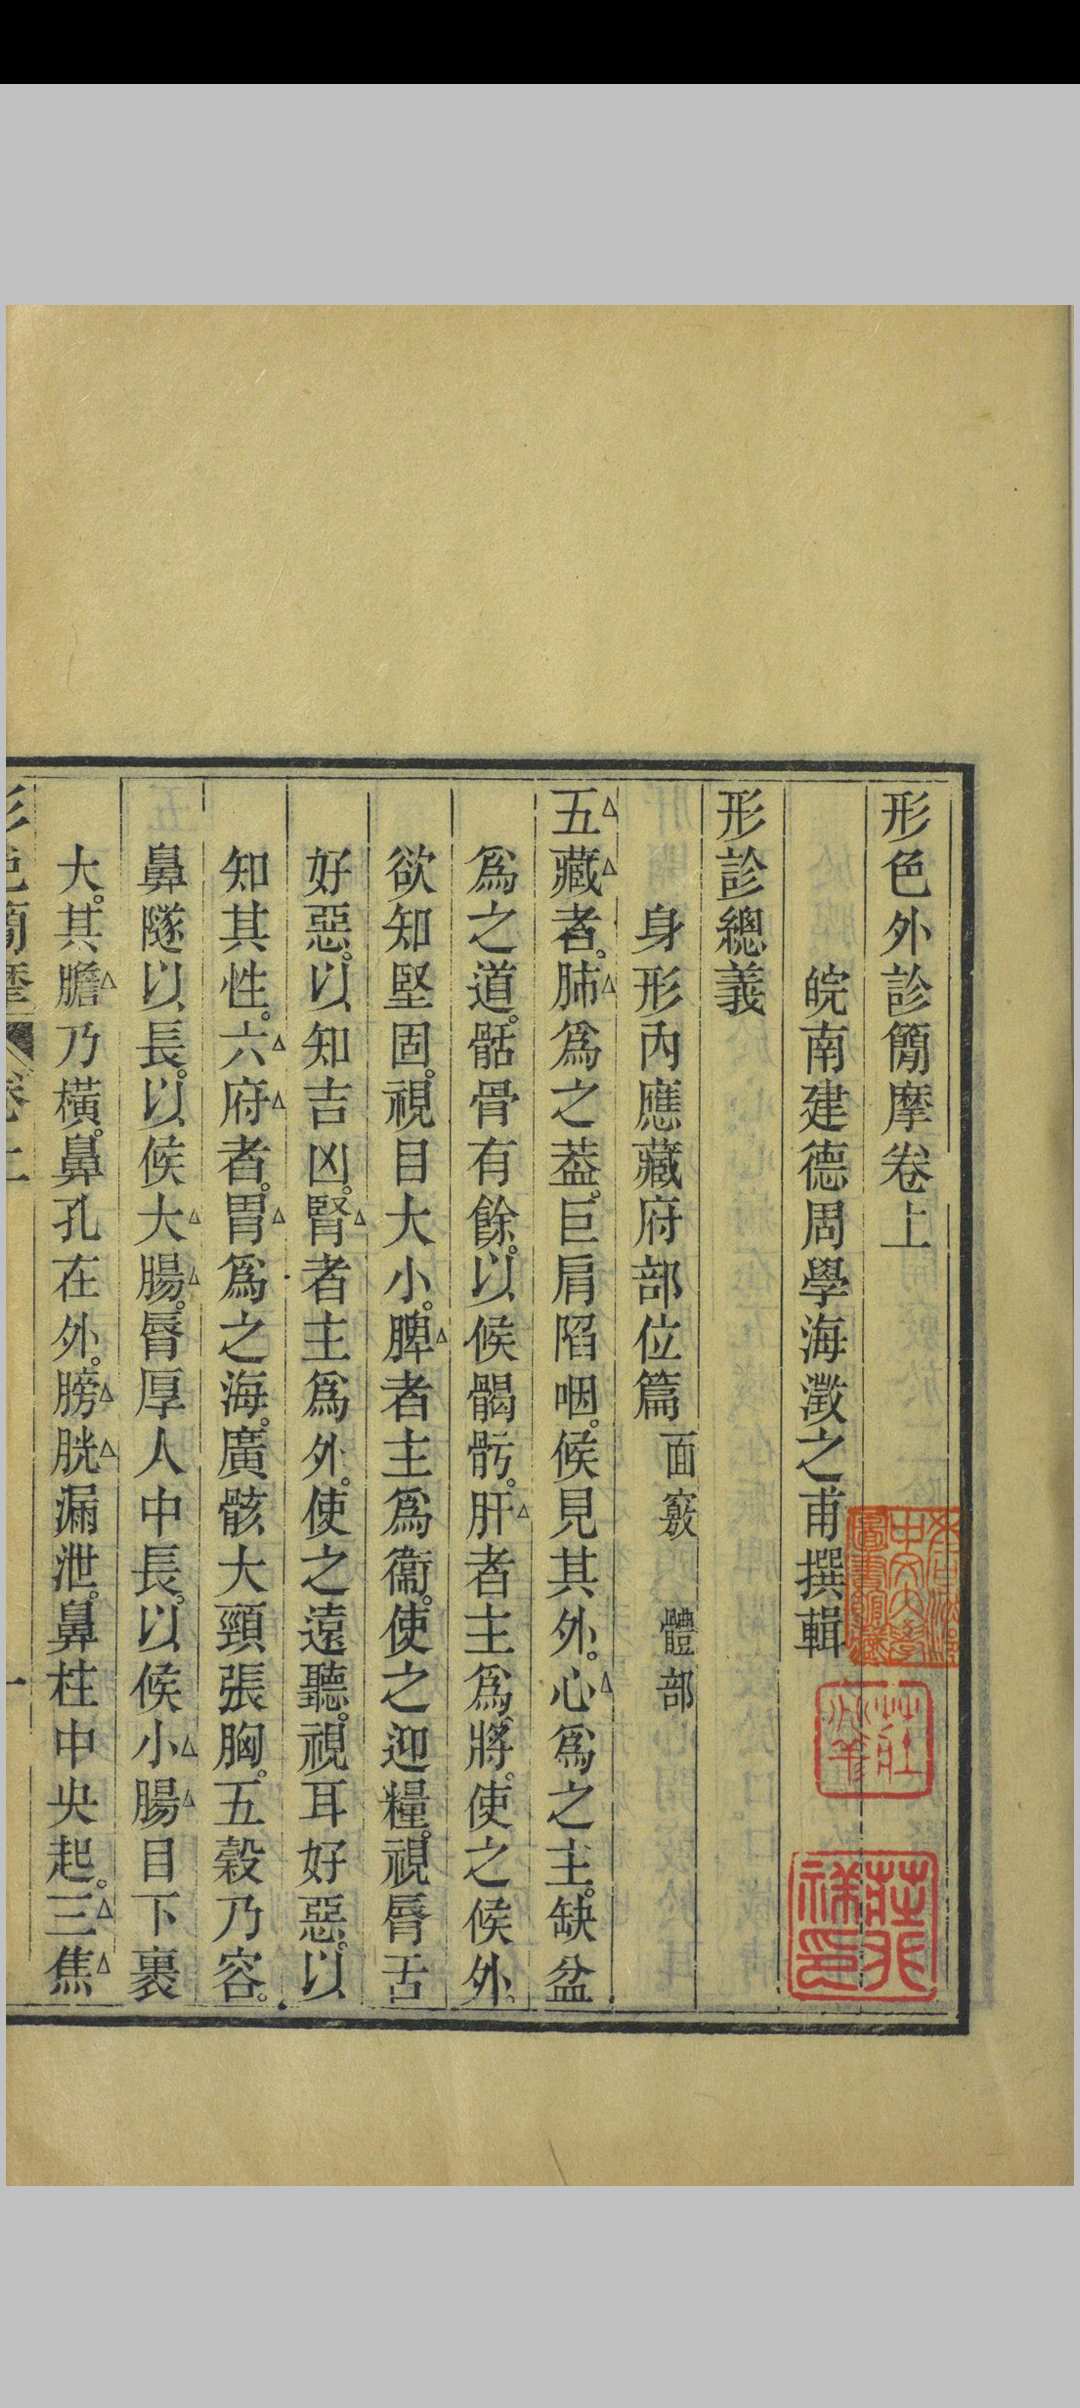 形色外診簡摩卷上
皖南建德周學海澂之甫撰輯
形診總義
身形內應藏府部位篇 面竅 體部
五藏者。肺爲之葢。巨肩陷咽。候見其外。心爲之主。缺盆
爲之道。骷骨有餘。以候髑骬。肝者主爲將。使之候外。
欲知堅固。視目大小。脾者主爲衞。使之迎糧。視脣舌
好惡。以知吉凶。腎者主爲外。使之遠聽。視耳好惡。以
知其性。六府者。胃爲之海。廣骸大頸張胸。五穀乃容。
鼻隧以長。以候大腸。脣厚人中長。以候小腸目下裹
大。其膽乃橫。鼻孔在外。膀胱漏泄。鼻柱中央起。三焦
形色簡摩 卷上 一
莊行
祿印